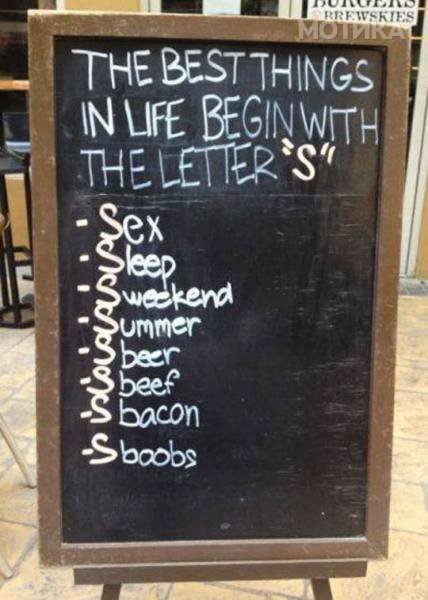 BURGERS
BREWSKIES
МОТИКА
THE BEST THINGS
IN LIFE BEGIN WITH
THE LETTER "S"
- Sex
- Sleep
- Sweekend
- Summer
- Sbeer
- Sbeef
- Sbacon
- Sboobs